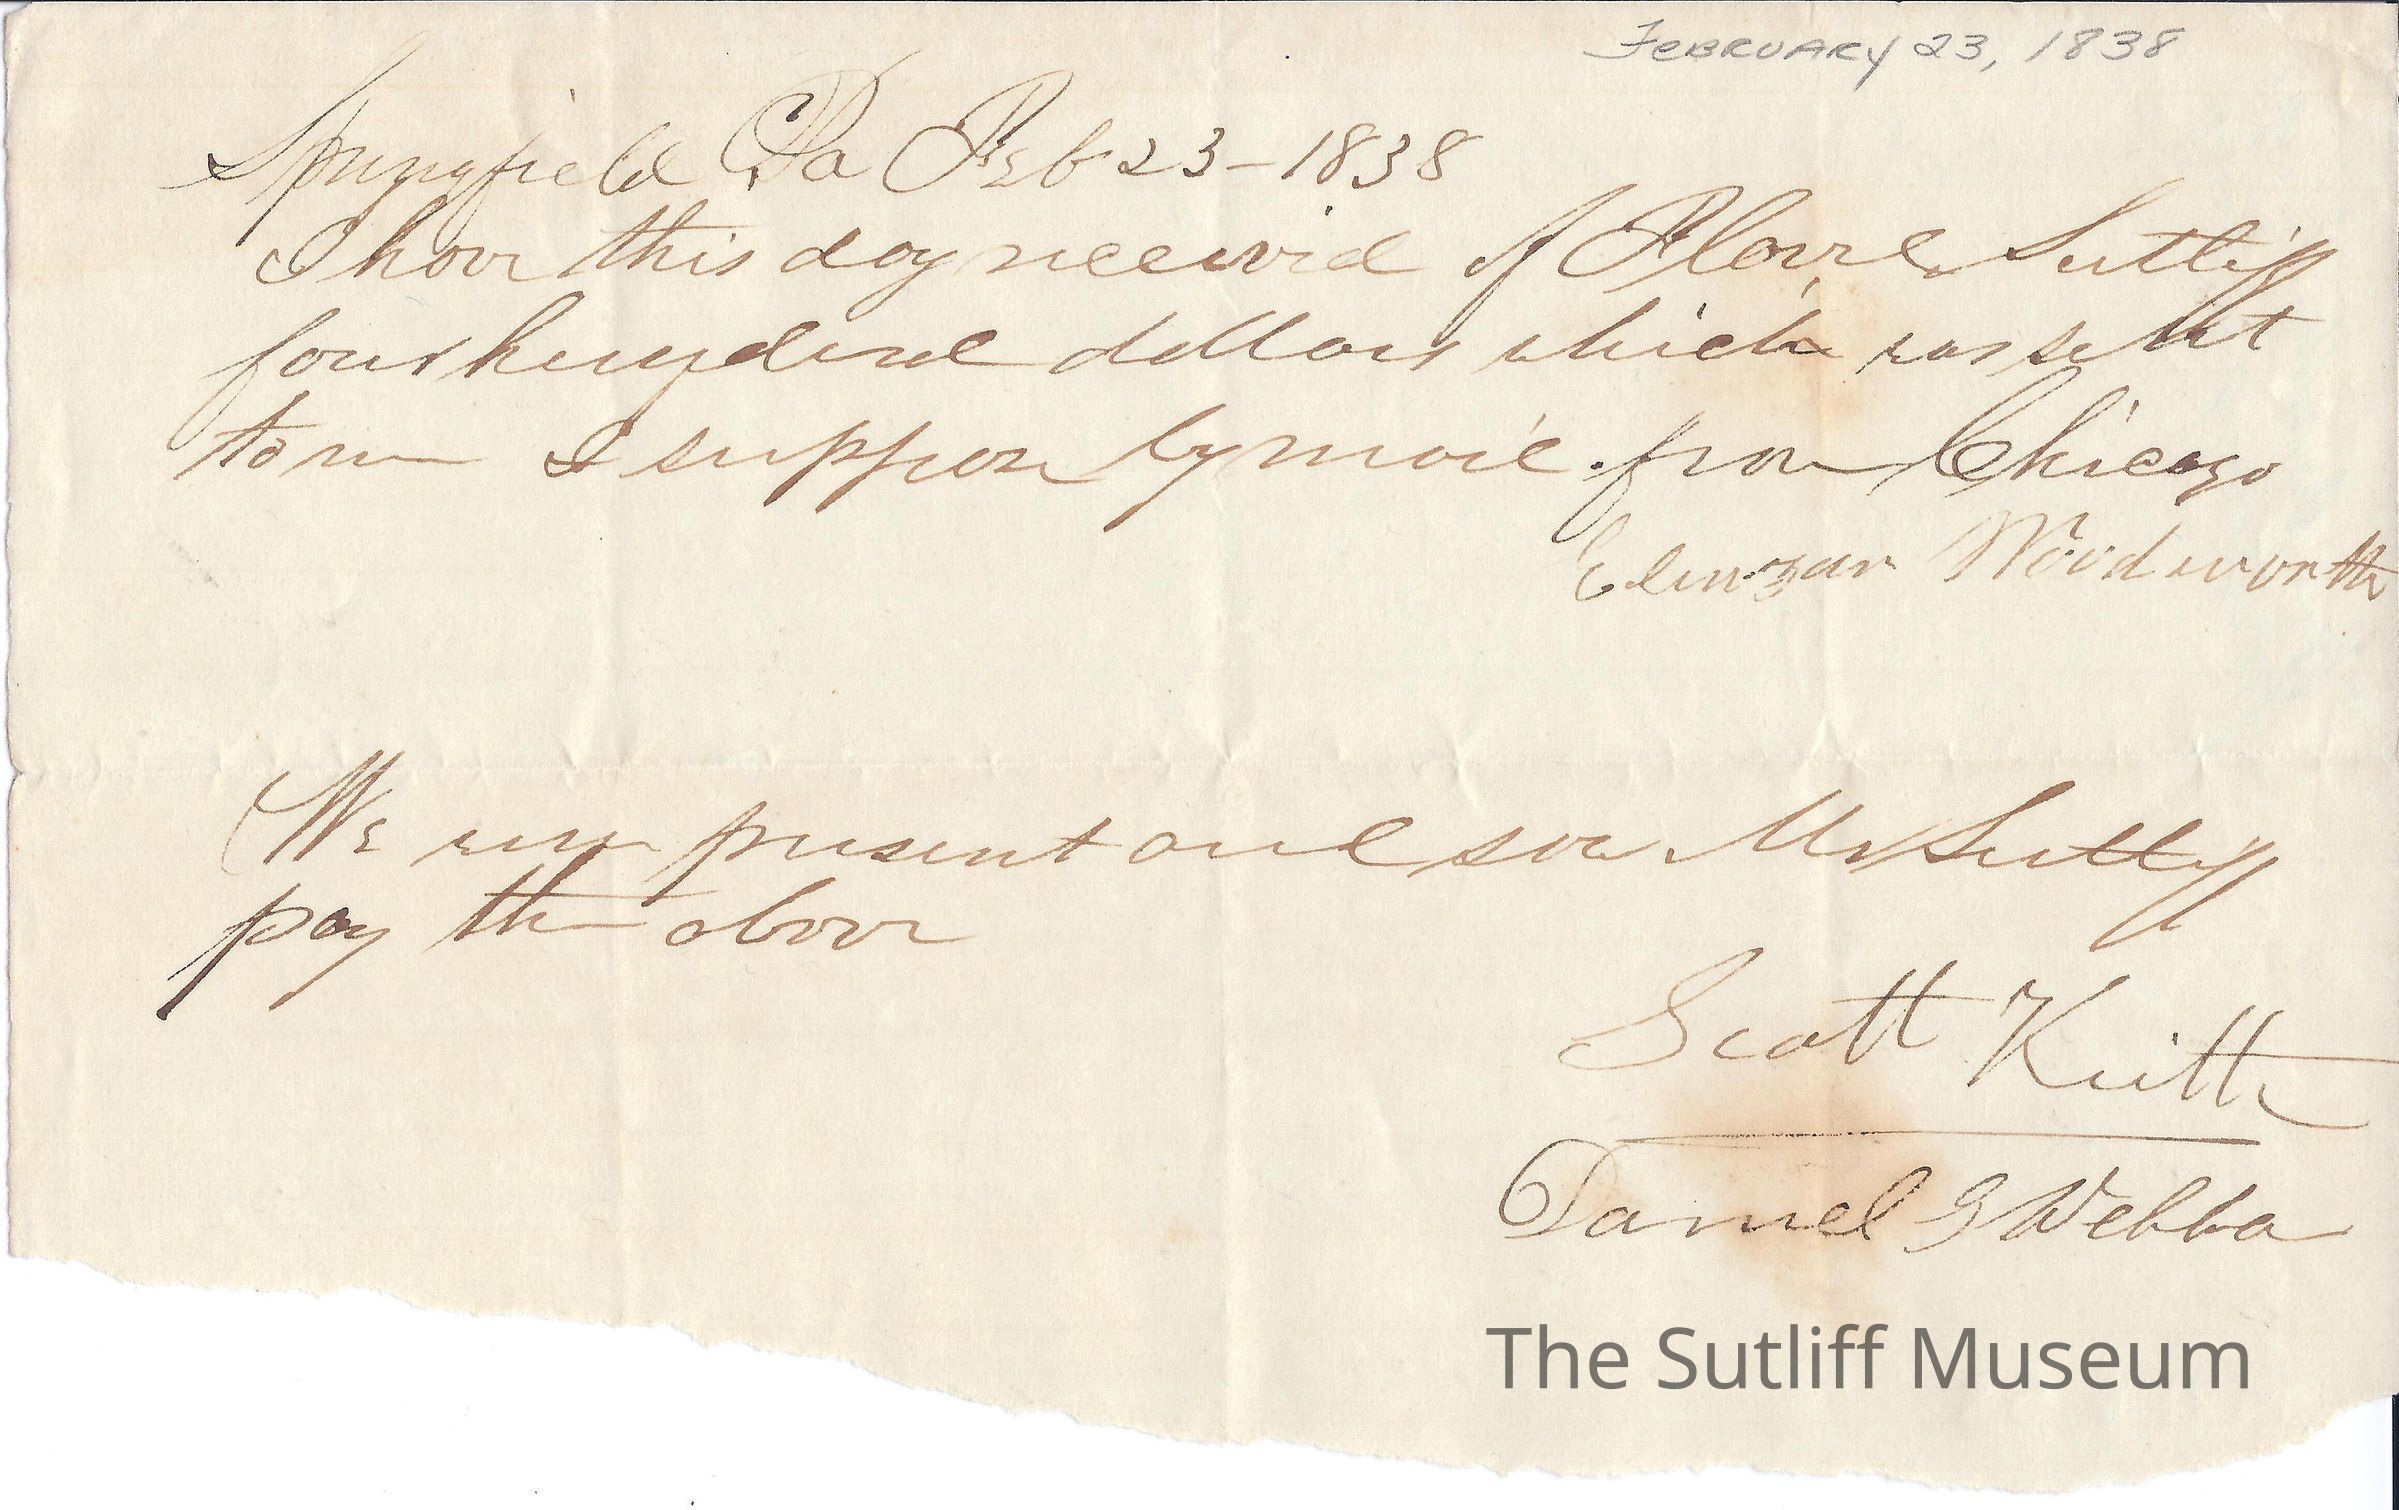 February 23, 1838
Springfield Pa Feb 23 - 1838
I have this day received of Flavel Sutliff
four hundred dollars which was sent
to me I suppose by mail from Chicago
Ebenezar Woodworth
We were present and saw Mr Sutliff
pay the above
Scott Keith
Daniel G Webber
The Sutliff Museum